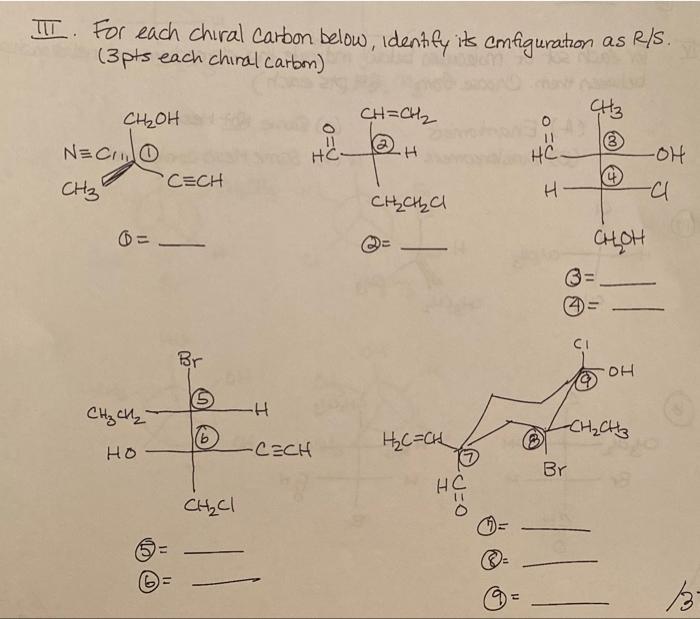 III. For each chiral carbon below, identify its configuration as R/S.
(3pts each chiral carbon)
CH₂OH
N≡C ①
CH₃ C≡CH
①= ___
CH=CH₂
O
HC ② H
CH₂CH₂Cl
②= ___
CH₃
O
HC ③ OH
H ④ Cl
CH₂OH
③= ___
④= ___
Br
CH₃CH₂ ⑤ H
HO ⑥ C≡CH
CH₂Cl
⑤= ___
⑥= ___
Cl
⑨ OH
H₂C=CH ⑦ ⑧ CH₂CH₃
Br
HC
O
⑦= ___
⑧= ___
⑨= ___
/3